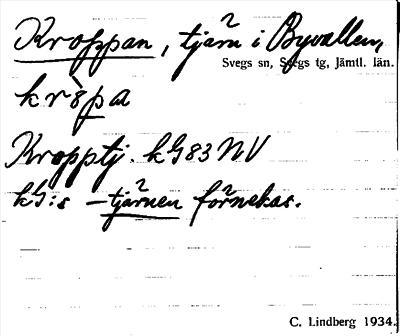 Kroppan, tjärn i Byvallen,
Svegs sn, Svegs tg, Jämtl. län.
kròpa
Kropptj. kG 83 NV
kG:s -tjärnen förnekas.
C. Lindberg 1934.